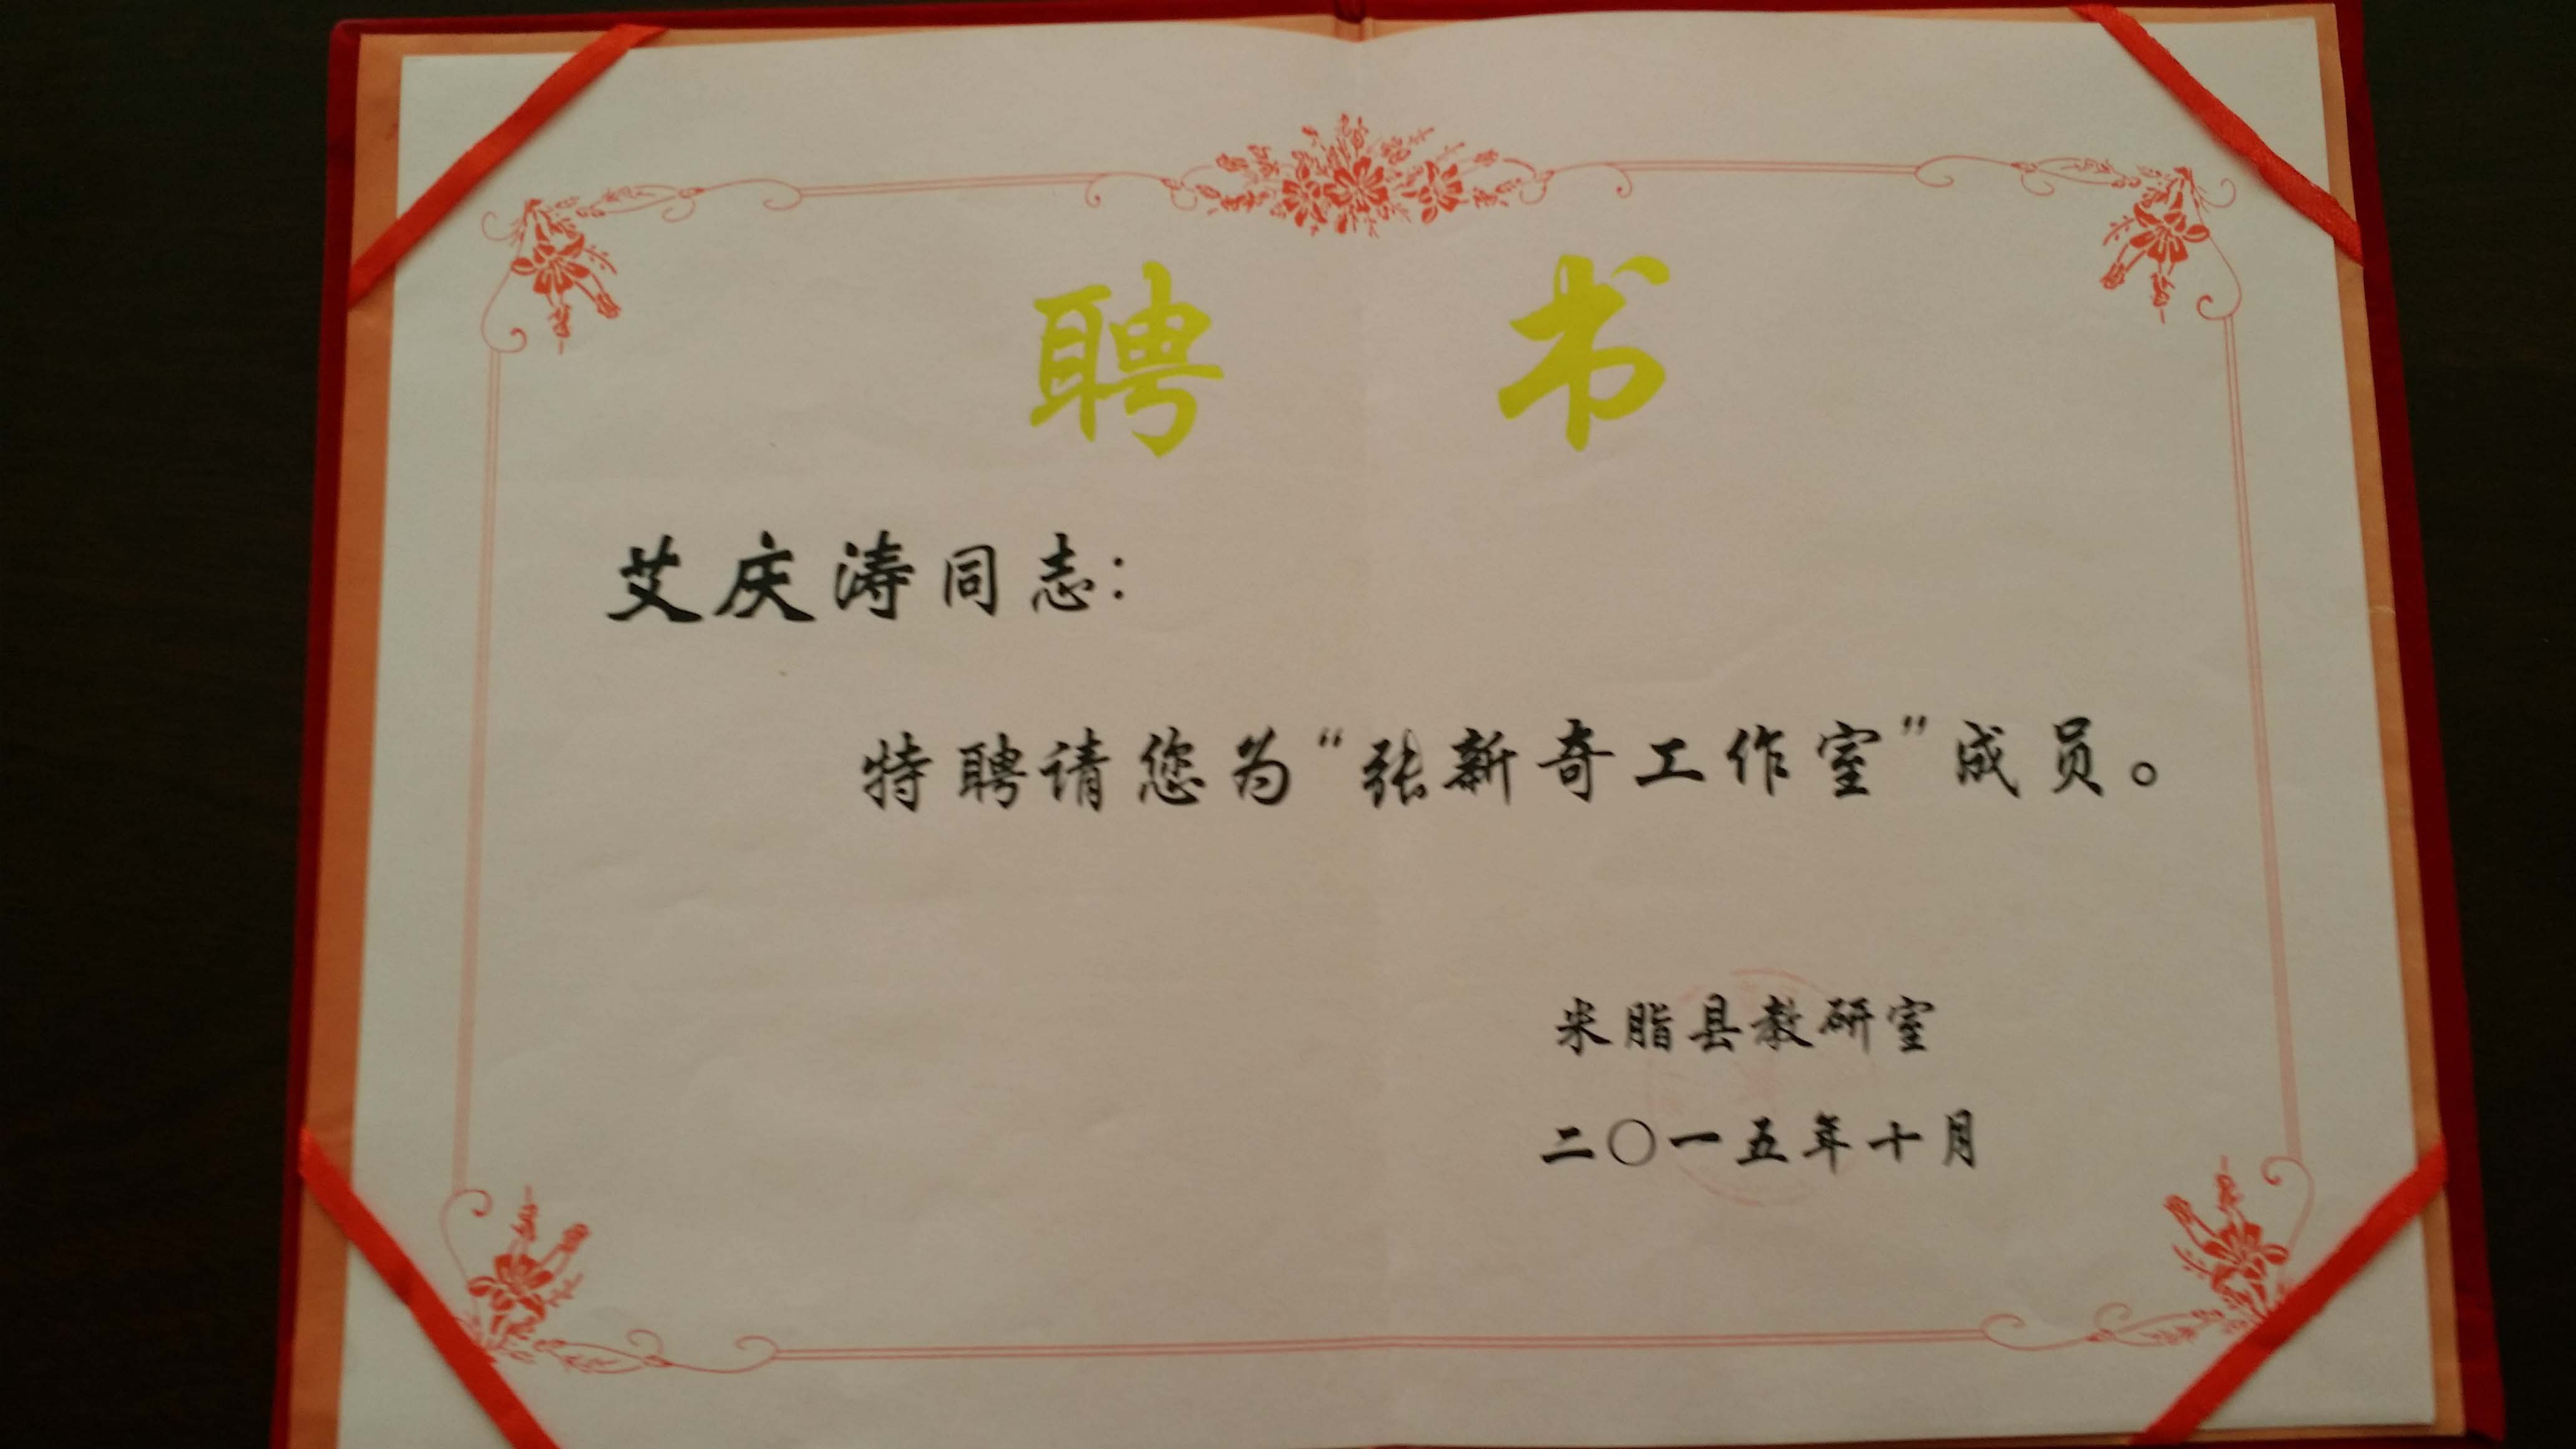 聘 书
艾庆涛同志：
特聘请您为“张新奇工作室”成员。
米脂县教研室
二〇一五年十月